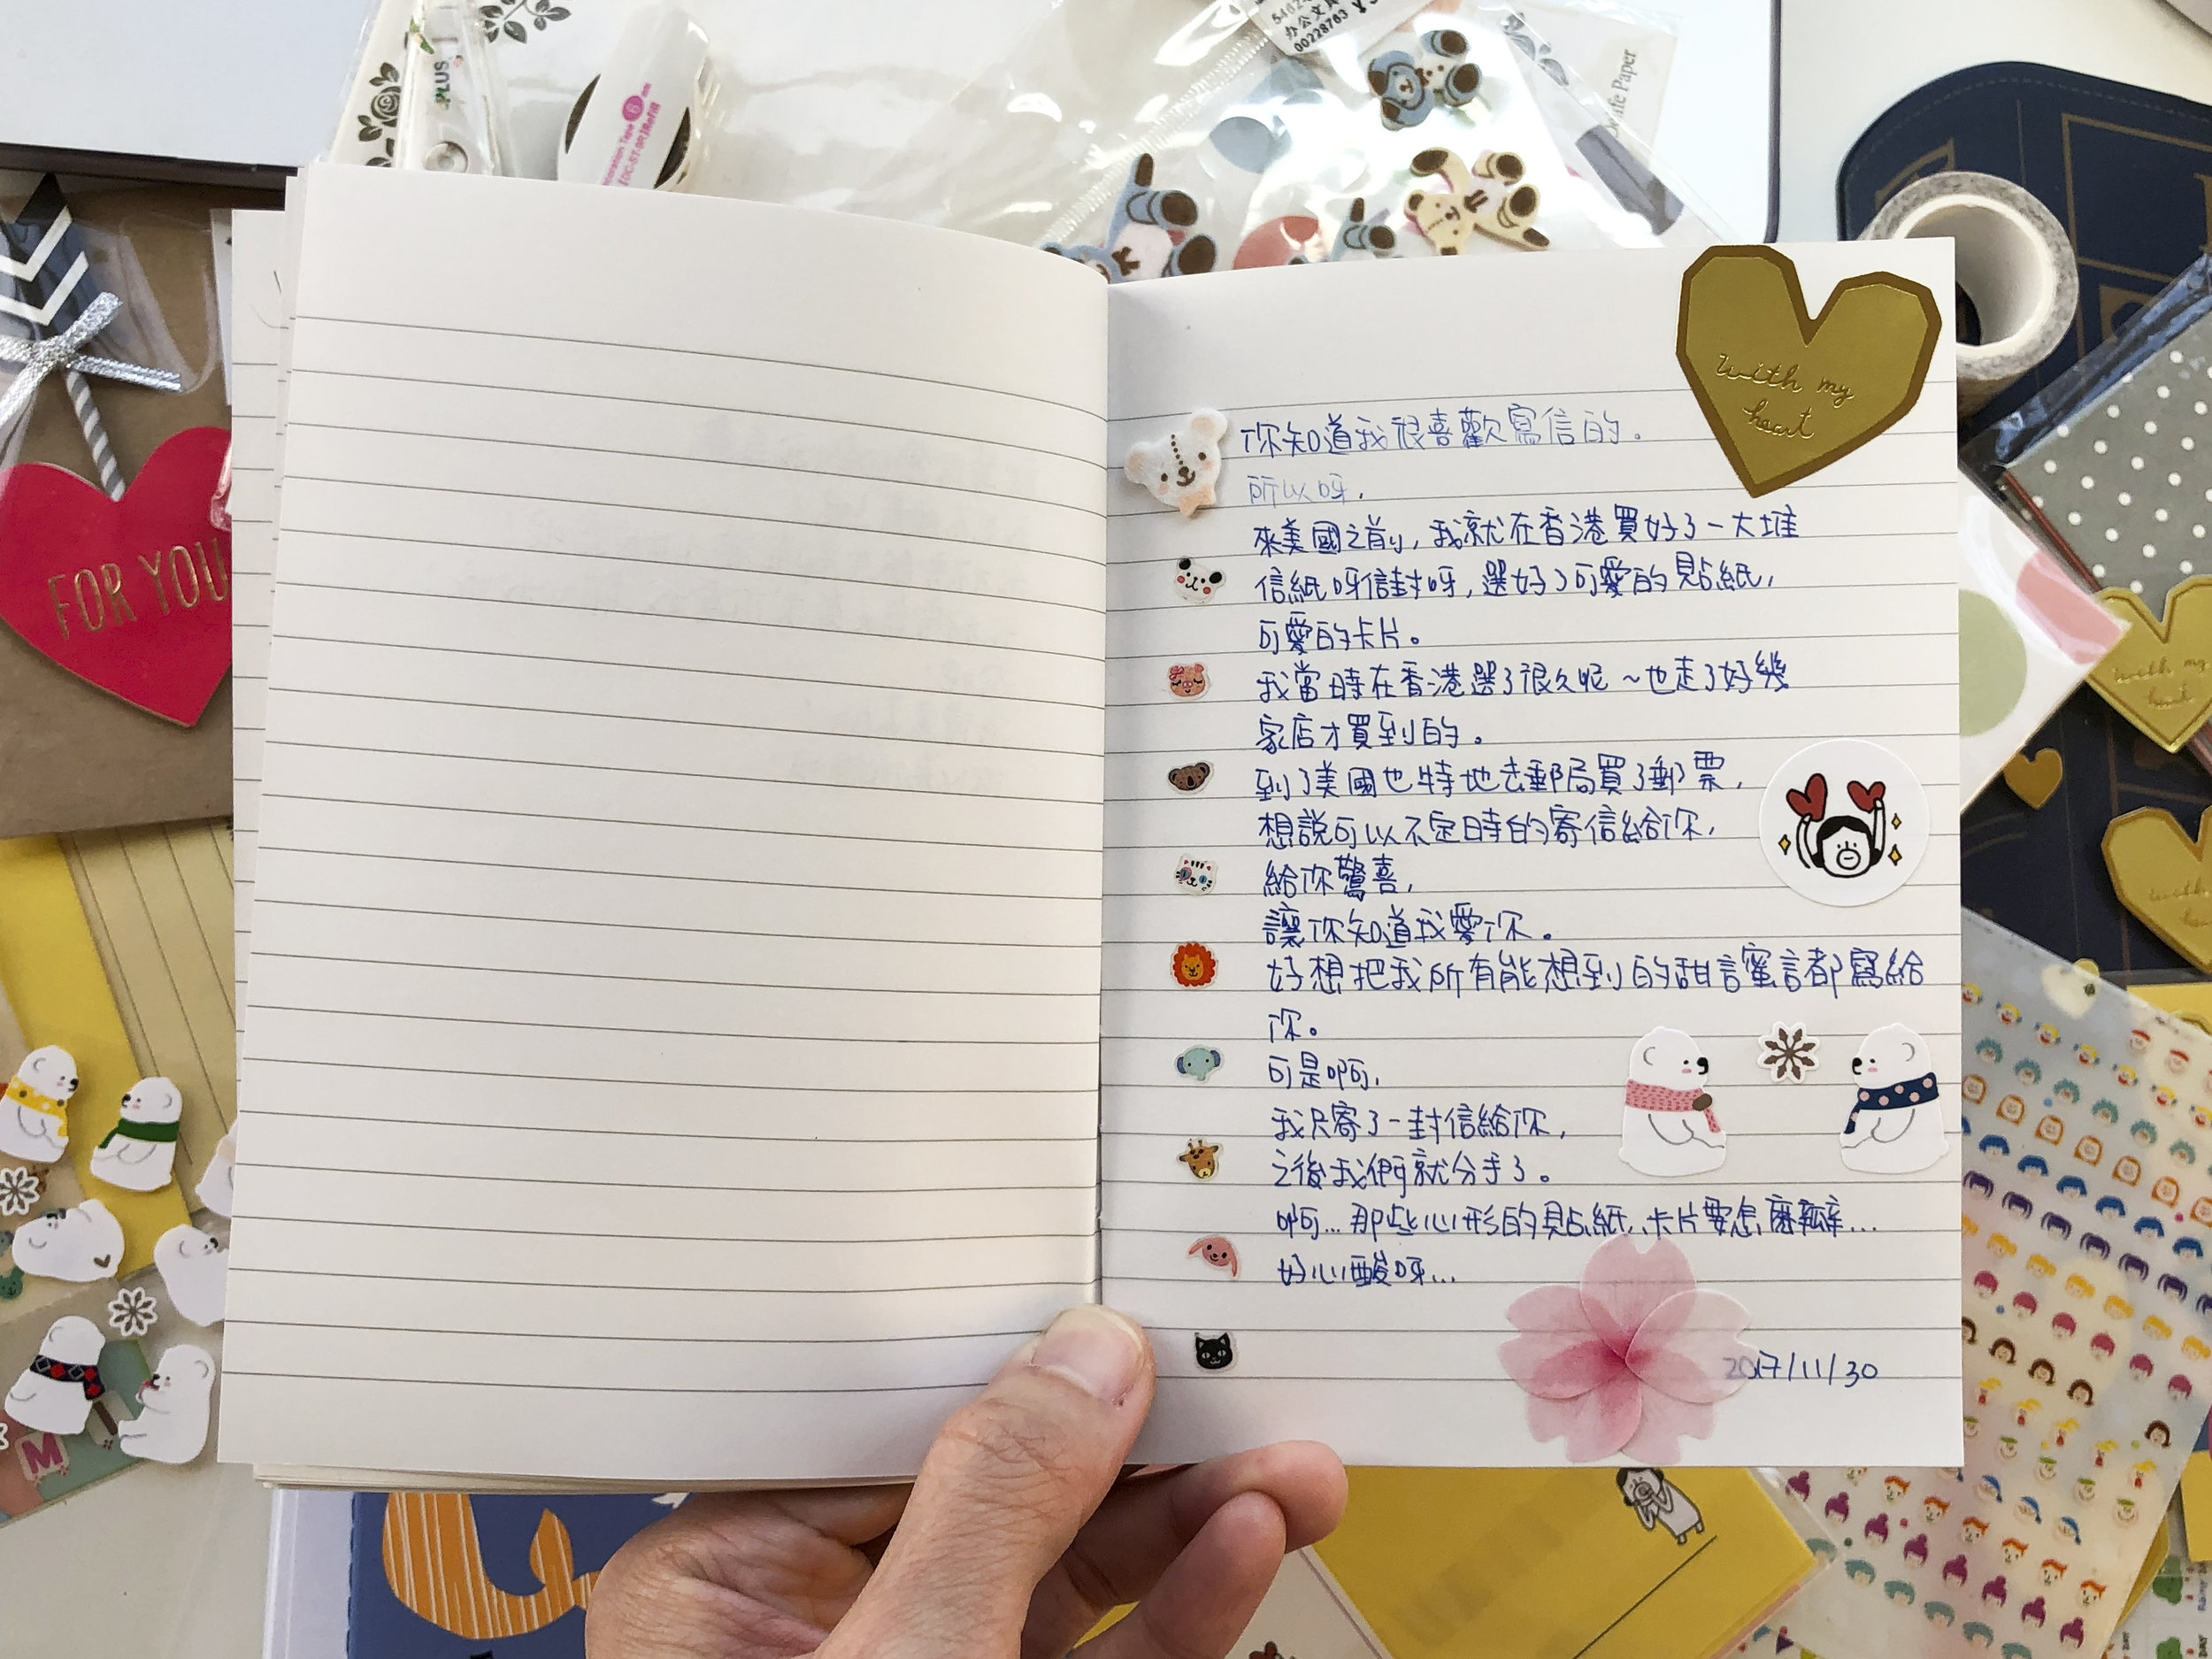 你知道我很喜歡寫信的。
所以呀，
來美國之前，我就在香港買好了一大堆
信紙呀信封呀，選好了可愛的貼紙，
可愛的卡片。
我當時在香港選了很久呢～也走了好幾
家店才買到的。
到了美國也特地去郵局買了郵票，
想說可以不定時的寄信給你，
給你驚喜，
讓你知道我愛你。
好想把我所有能想到的甜言蜜言都寫給
你。
可是啊，
我只寄了一封信給你，
之後我們就分手了。
啊...那些心形的貼紙，卡片要怎麼辦...
好心酸呀...
2017/11/30
with my
heart
FOR YOU
PLUS
with my
heart
M
00228763